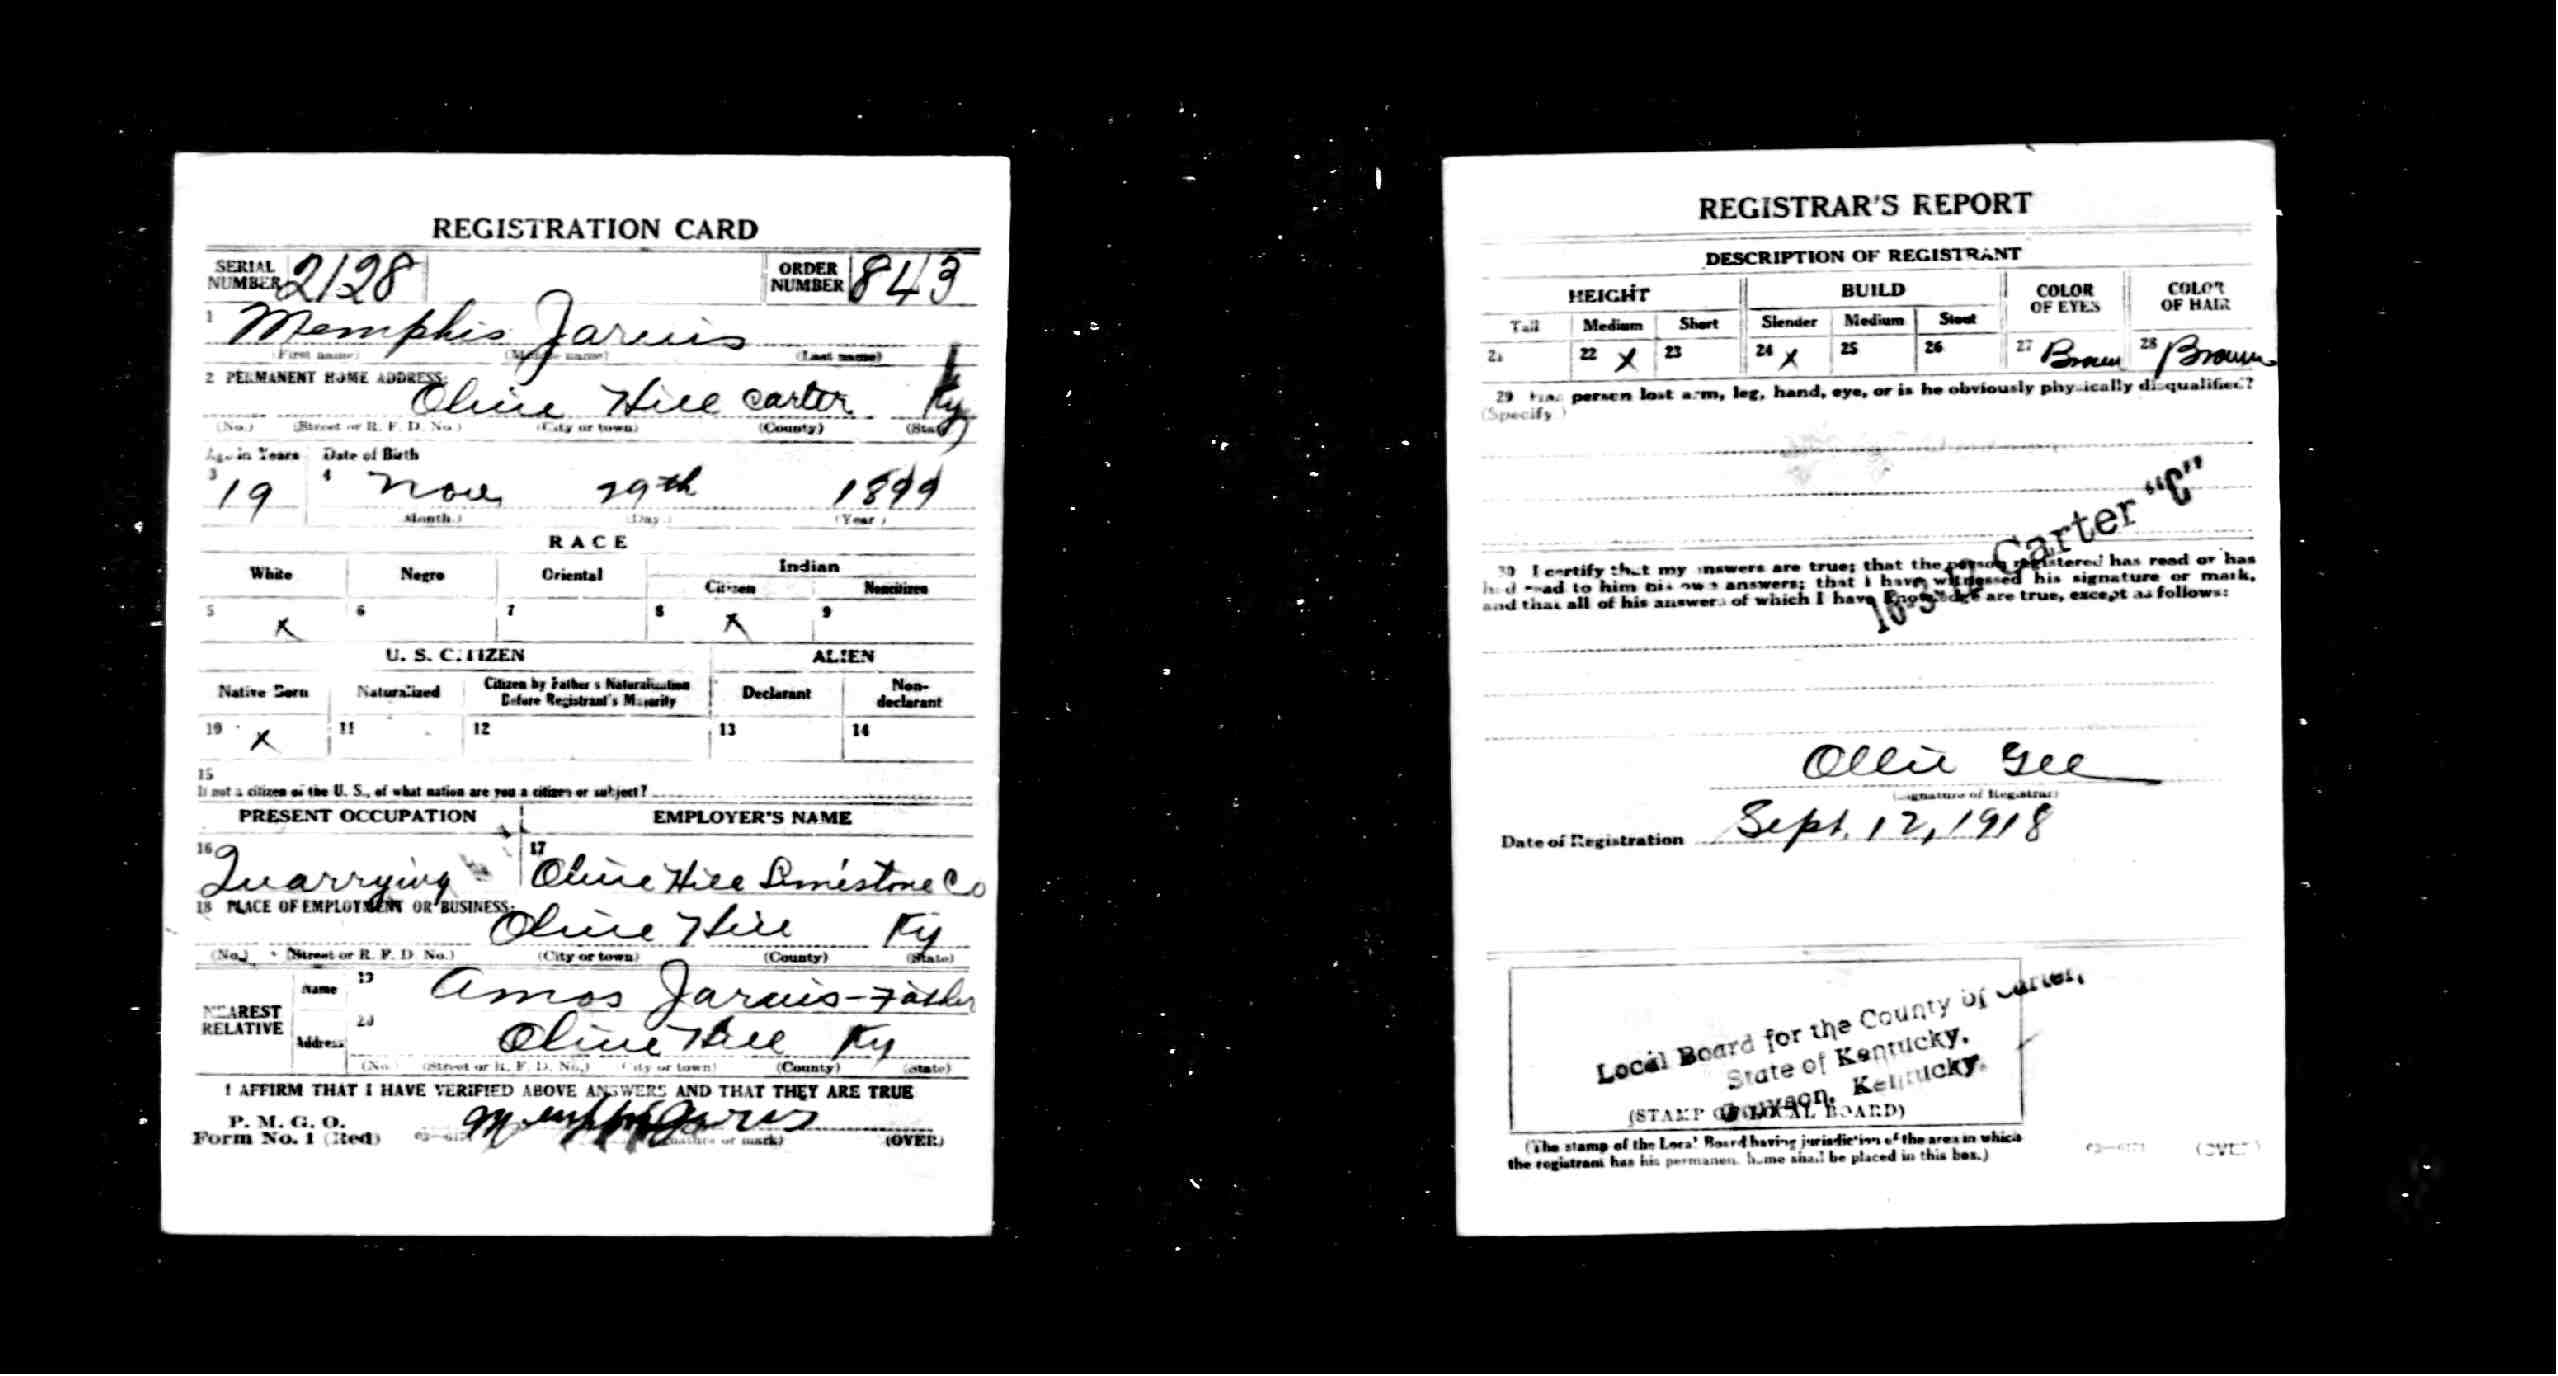 REGISTRATION CARD
SERIAL NUMBER 2128 ORDER NUMBER 843
1 Memphis Jarvis
(First name) (Middle name) (Last name)
2 PERMANENT HOME ADDRESS:
Olive Hill Carter Ky
(No.) (Street or R. F. D. No.) (City or town) (County) (State)
Age in Years Date of Birth
3 19 4 Nov. 29th 1899
(Month.) (Day.) (Year.)
RACE
White Negro Oriental Indian
Citizen Noncitizen
5 x 6 7 8 x 9
U. S. CITIZEN ALIEN
Native Born Naturalized Citizen by Father's Naturalization Before Registrant's Majority Declarant Non-declarant
10 x 11 12 13 14
15
If not a citizen of the U. S., of what nation are you a citizen or subject?
PRESENT OCCUPATION EMPLOYER'S NAME
16 Quarrying 17 Olive Hill Limestone Co
18 PLACE OF EMPLOYMENT OR BUSINESS:
Olive Hill Ky
(No.) (Street or R. F. D. No.) (City or town) (County) (State)
NEAREST RELATIVE Name 19 Amos Jarvis - Father
Address 20 Olive Hill Ky
(No.) (Street or R. F. D. No.) (City or town) (County) (State)
I AFFIRM THAT I HAVE VERIFIED ABOVE ANSWERS AND THAT THEY ARE TRUE
P. M. G. O.
Form No. 1 (Red) Memphis Jarvis
(Signature or mark) (OVER)
REGISTRAR'S REPORT
DESCRIPTION OF REGISTRANT
HEIGHT BUILD COLOR OF EYES COLOR OF HAIR
Tall Medium Short Slender Medium Stout
21 22 x 23 24 x 25 26 27 Brown 28 Brown
29 Has person lost arm, leg, hand, eye, or is he obviously physically disqualified?
(Specify.)
Carter "C"
30 I certify that my answers are true; that the person registered has read or has
had read to him his own answers; that I have witnessed his signature or mark,
and that all of his answers of which I have knowledge are true, except as follows:
Ollie Gee
(Signature of Registrar)
Date of Registration Sept. 12, 1918
Local Board for the County of Carter,
State of Kentucky.
Grayson, Kentucky.
(STAMP OF LOCAL BOARD)
(The stamp of the Local Board having jurisdiction of the area in which
the registrant has his permanent home shall be placed in this box.)
(OVER)